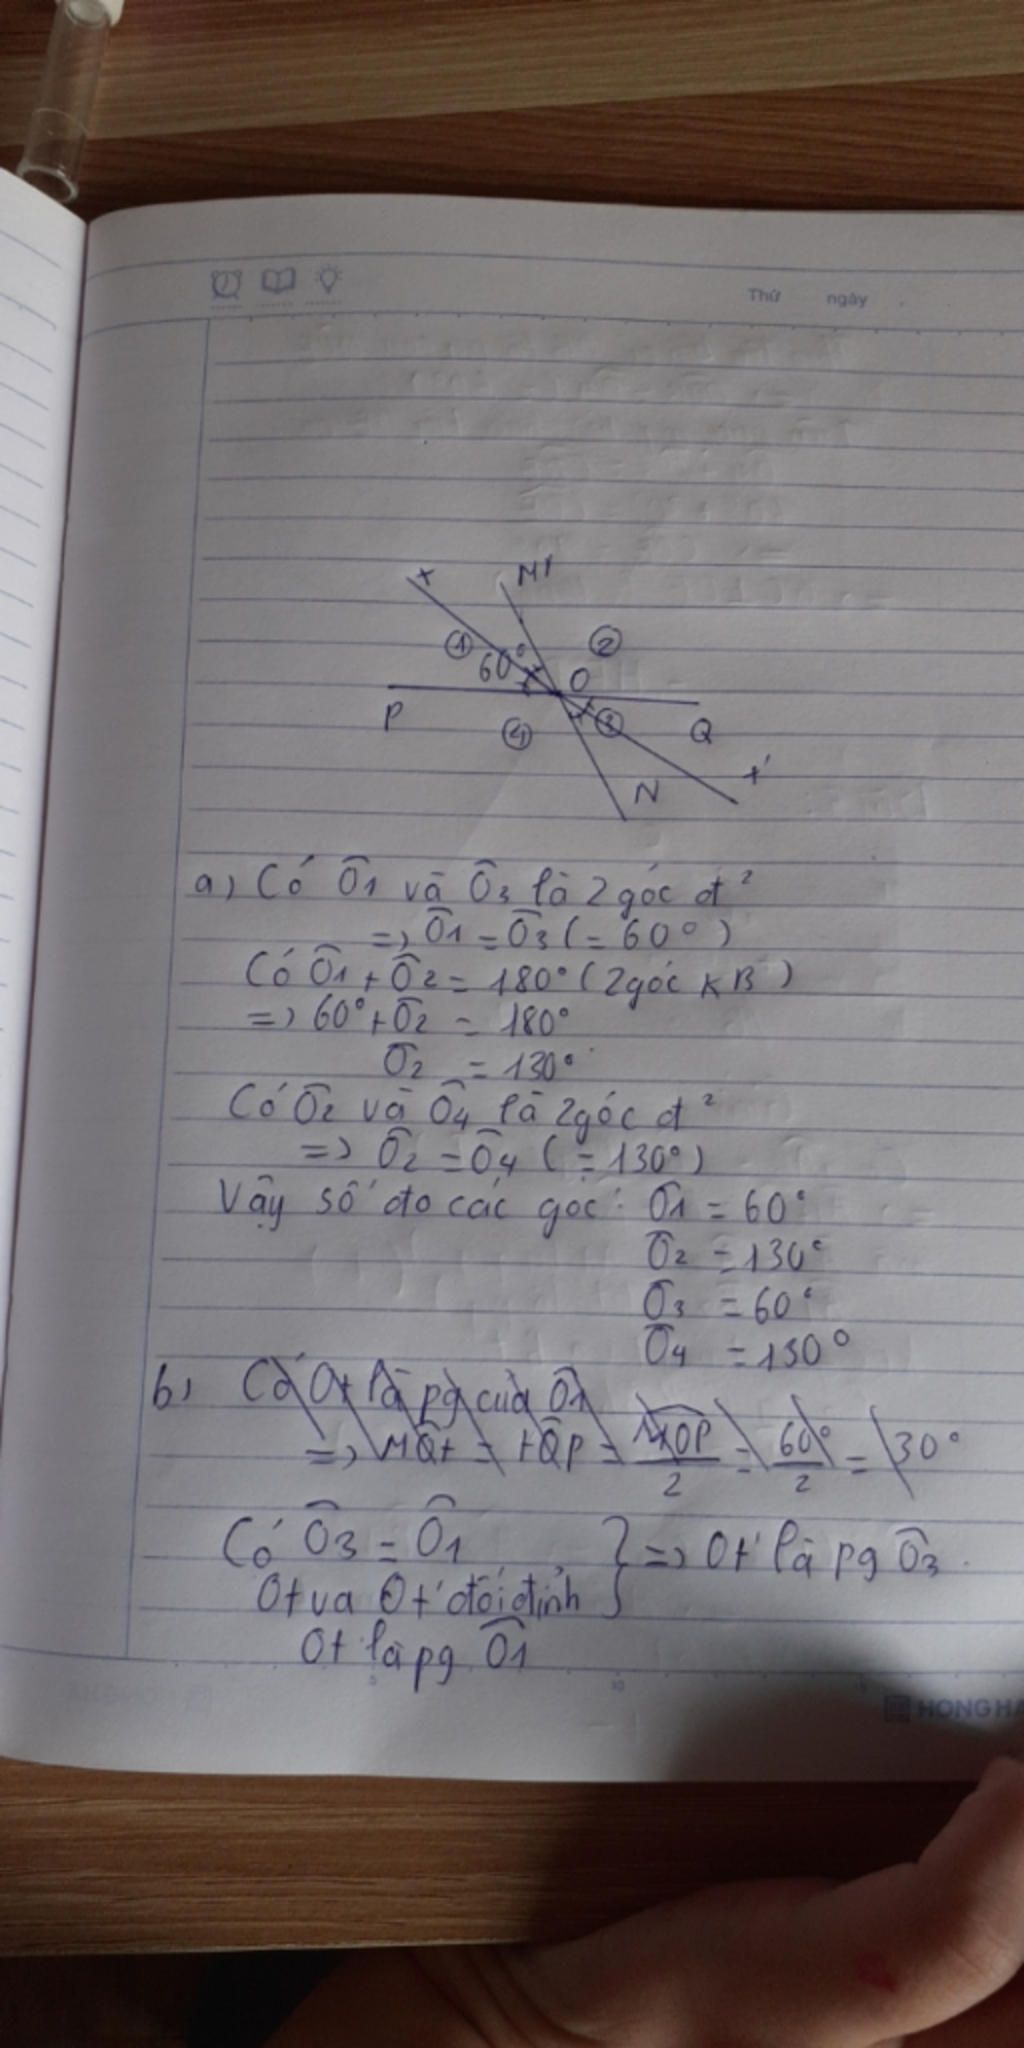 Thứ ngày
t
M
60°
①
②
O
P
④
③
Q
N
t'
a) Có Ô1 và Ô3 là 2 góc đ²
=> Ô1 = Ô3 (= 60°)
Có Ô1 + Ô2 = 180° (2 góc KB)
=> 60° + Ô2 = 180°
Ô2 = 130°
Có Ô2 và Ô4 là 2 góc đ²
=> Ô2 = Ô4 (= 130°)
Vậy số đo các góc: Ô1 = 60°
Ô2 = 130°
Ô3 = 60°
Ô4 = 130°
b) Có Ot là pg của Ô1
=> MOt = tOP = MOP/2 = 60°/2 = 30°
Có Ô3 = Ô1
Ot va Ot' đối đỉnh } => Ot' là pg Ô3.
Ot là pg Ô1
HONG HA